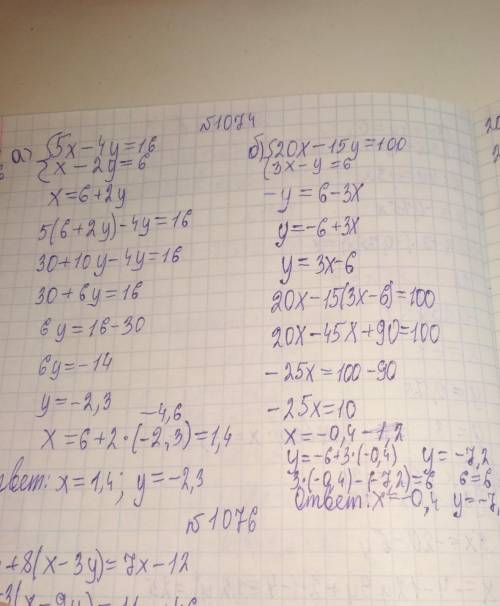 №1074
а) {5x-4y=16
{x-2y=6
x=6+2y
5(6+2y)-4y=16
30+10y-4y=16
30+6y=16
6y=16-30
6y=-14
y=-2,3
-4,6
x=6+2·(-2,3)=1,4
твет: x=1,4; y=-2,3
б) {20x-15y=100
{3x-y=6
-y=6-3x
y=-6+3x
y=3x-6
20x-15(3x-6)=100
20x-45x+90=100
-25x=100-90
-25x=10
x=-0,4 -1,2
y=-6+3·(-0,4) y=-7,2
3·(-0,4)-(-7,2)=6 6=6
Ответ: x=-0,4 y=-7,
№1076
+8(x-3y)=7x-12